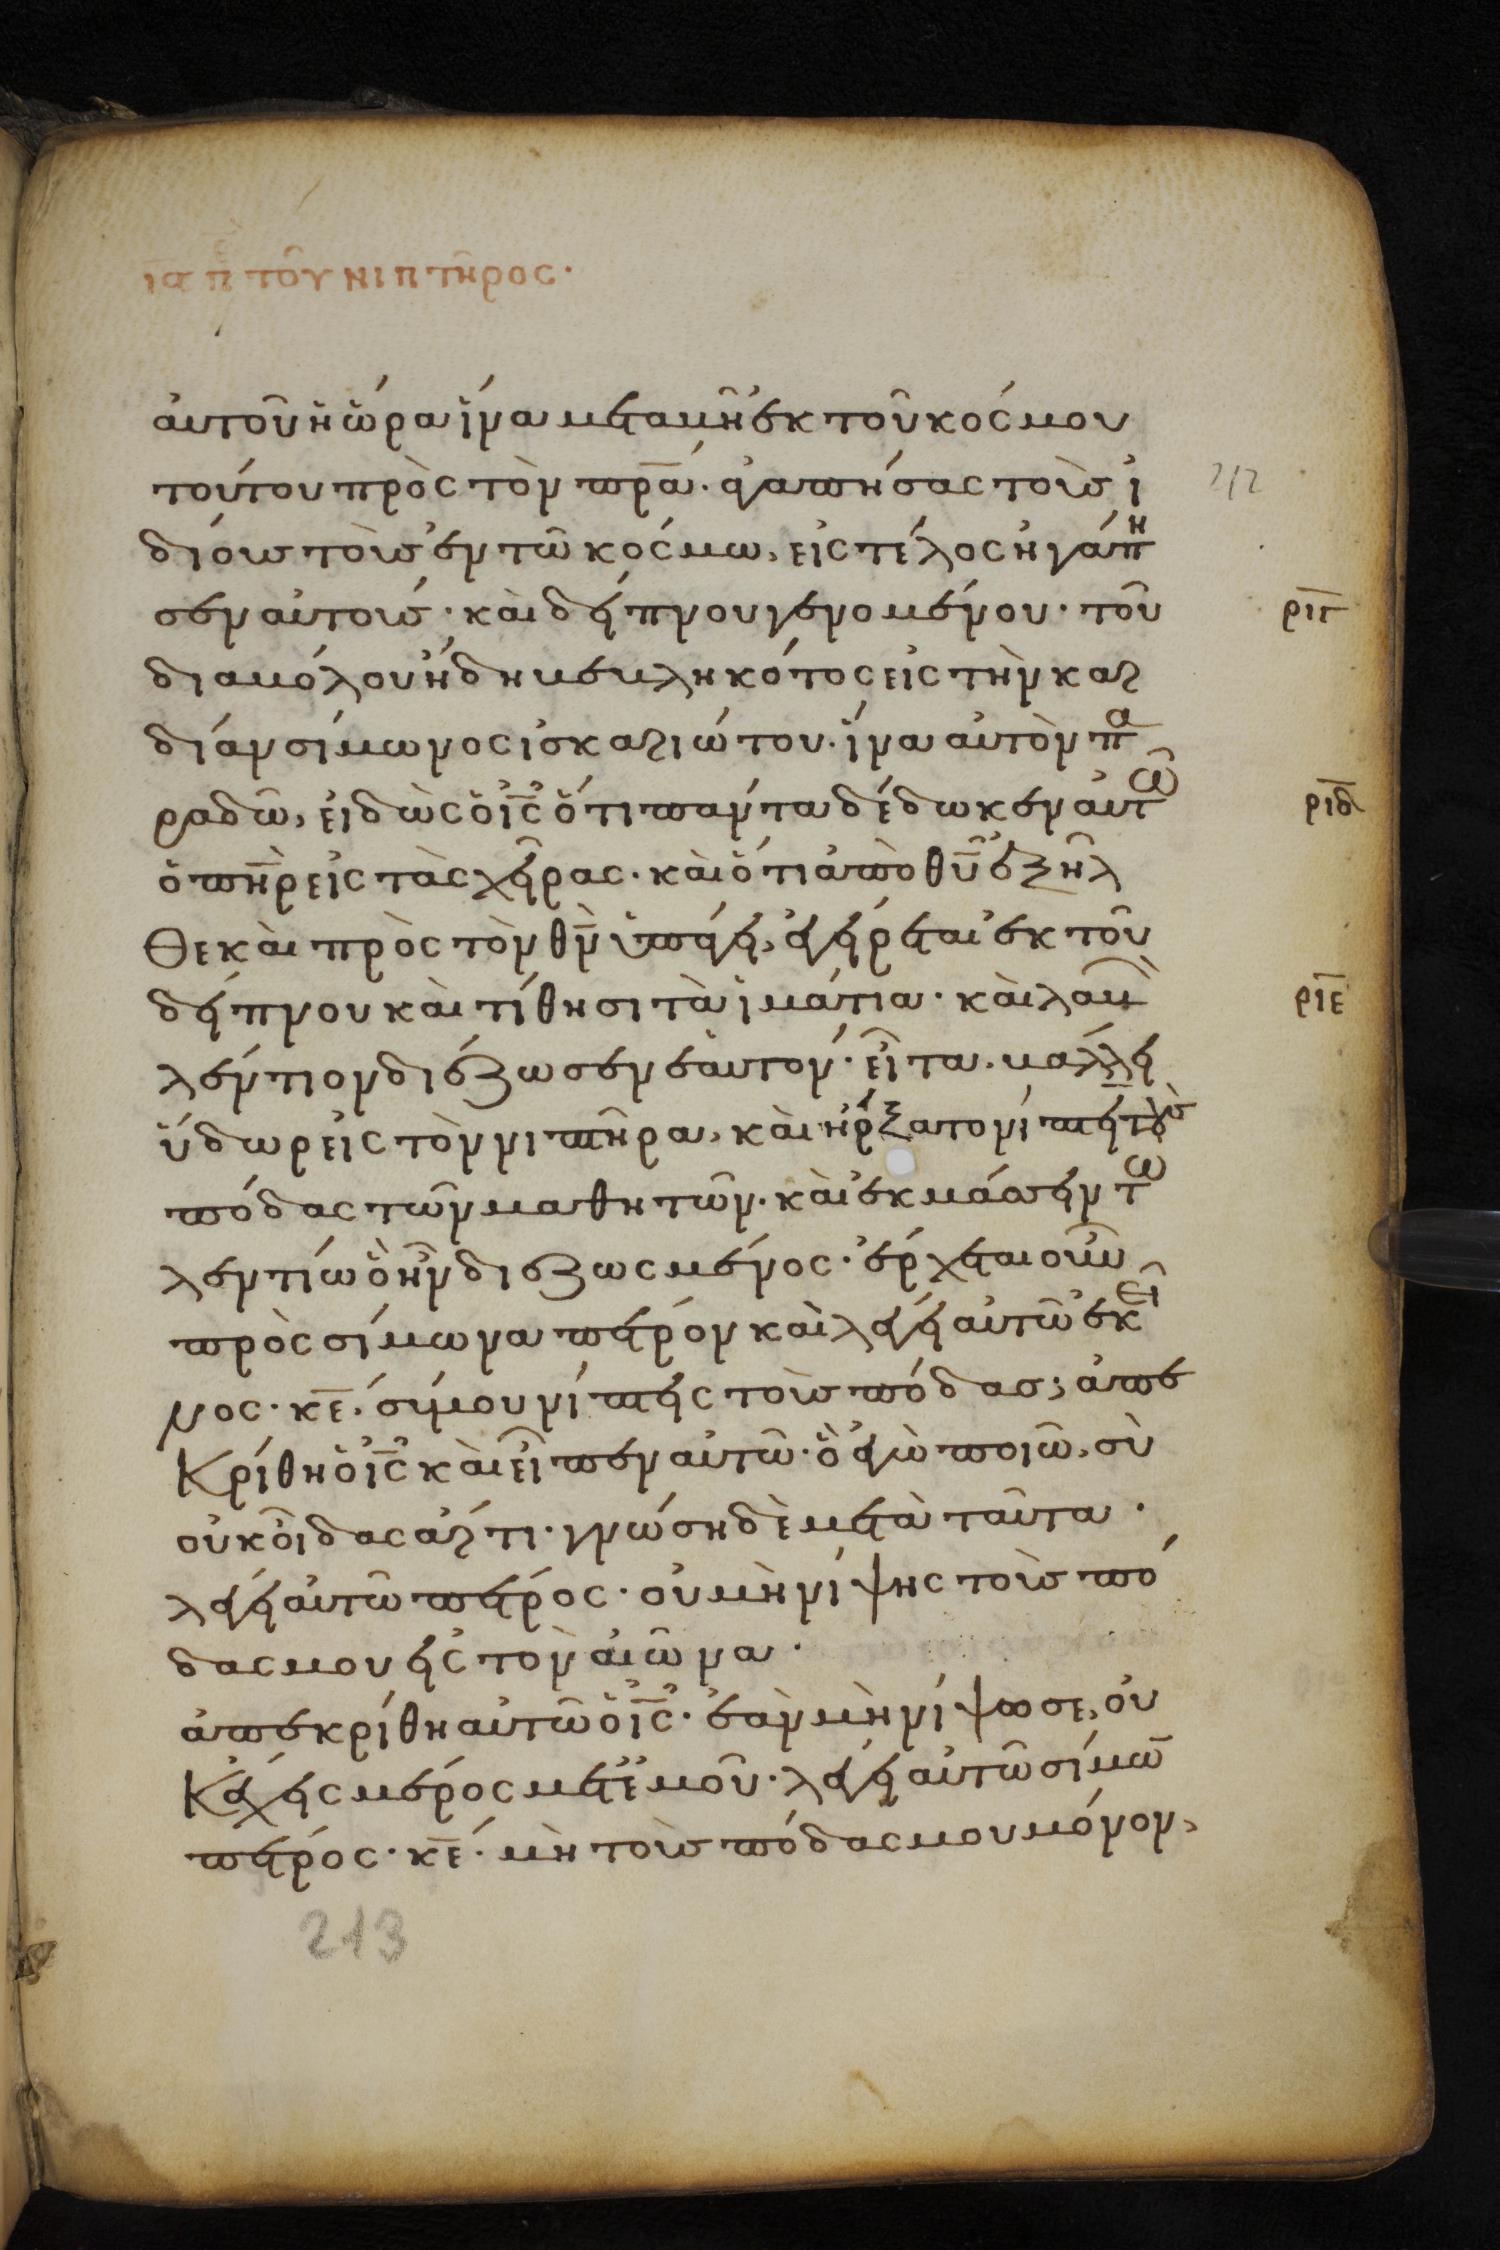 ια πε τοῦ νιπτῆρος·
αὐτοῦ ἡ ὥρα ἵνα μεταβῆ ἐκ τοῦ κόσμου
τούτου πρὸς τὸν πρ̅α· ἀγαπήσας τοὺς ἰ
212
δίους τοὺς ἐν τῶ κόσμω, εἰς τέλος ἠγάπη
σεν αὐτούς· καὶ δείπνου γενομένου· τοῦ
ριγ
διαβόλου ἤδη βεβληκότος εἰς τὴν καρ
δίαν σίμωνος ἰσκαριώτου· ἵνα αὐτὸν πα
ραδῶ, εἰδὼς ὁ ι̅ς̅ ὅτι πάντα δέδωκεν αὐτῶ
ριδ
ὁ π̅η̅ρ̅ εἰς τὰς χεῖρας· καὶ ὅτι ἀπὸ θ̅υ̅ ἐξῆλ
θε καὶ πρὸς τὸν θ̅ν̅ ὑπάγει, ἐγείρεται ἐκ τοῦ
δείπνου καὶ τίθησι τὰ ἱμάτια· καὶ λαβὼν
ριε
λέντιον διέζωσεν ἑαυτόν· εἶτα βάλλει
ὕδωρ εἰς τὸν νιπτῆρα, καὶ ἤρξατο νίπτειν τοὺς
πόδας τῶν μαθητῶν· καὶ ἐκμάσσειν τῶ
λεντίω ὃ ἦν διεζωσμένος· ἔρχεται οὖν
πρὸς σίμωνα πέτρον καὶ λέγει αὐτῶ ἐκεῖ
νος· κ̅ε̅· σύ μου νίπτεις τοὺς πόδας; ἀπε
κρίθη ὁ ι̅ς̅ καὶ εἶπεν αὐτῶ· ὃ ἐγὼ ποιῶ, σὺ
οὐκ οἶδας ἄρτι· γνώση δὲ μετὰ ταῦτα·
λέγει αὐτῶ πέτρος· οὐ μὴ νίψης τοὺς πό
δας μου εἰς τὸν αἰῶνα·
ἀπεκρίθη αὐτῶ ὁ ι̅ς̅· ἐὰν μὴ νίψω σε, οὐ
κ ἔχεις μέρος μετ ἐμοῦ· λέγει αὐτῶ σίμω̅
πέτρος· κ̅ε̅· μὴ τοὺς πόδας μου μόνον,
213